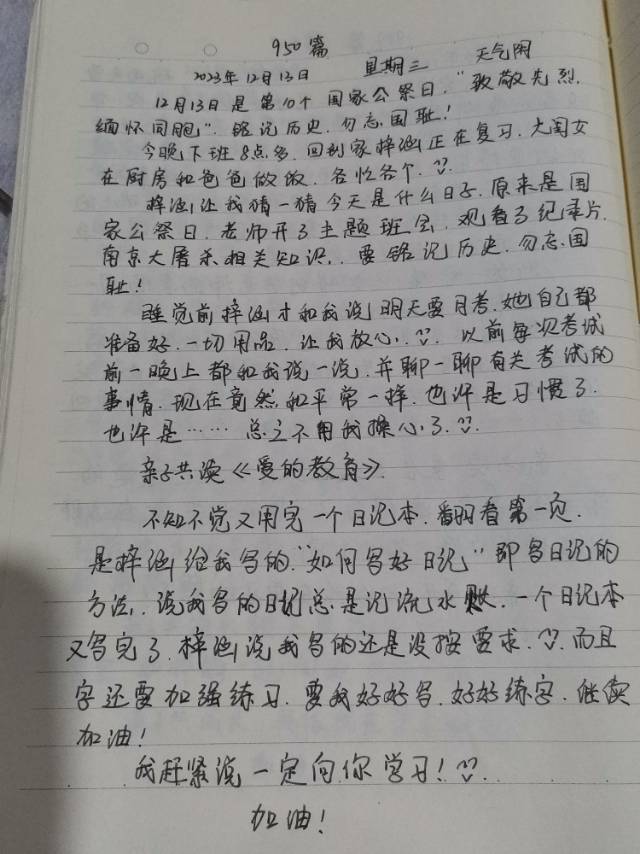 950篇
2023年12月13日 星期三 天气阴
12月13日是第10个国家公祭日."致敬先烈.
缅怀同胞".铭记历史.勿忘国耻!
今晚下班8点多.回到家梓涵正在复习.大闺女
在厨房和爸爸做饭.各忙各个.
梓涵让我猜一猜今天是什么日子.原来是国
家公祭日.老师开了主题班会.观看了纪录片.
南京大屠杀相关知识.要铭记历史.勿忘国
耻!
睡觉前梓涵才和我说明天要月考.她自己都
准备好.一切用品.让我放心.以前每次考试
前一晚上都和我说一说.并聊一聊有关考试的
事情.现在竟然和平常一样.也许是习惯了.
也许是……总之不用我操心了.
亲子共读《爱的教育》.
不知不觉又用完一个日记本.翻看第一页.
是梓涵给我写的."如何写好日记"即写日记的
方法.说我写的日记总是记流水账.一个日记本
又写完了.梓涵说我写的还是没按要求.而且
字还要加强练习.要我好好写.好好练字.继续
加油!
我赶紧说一定向你学习!
加油!